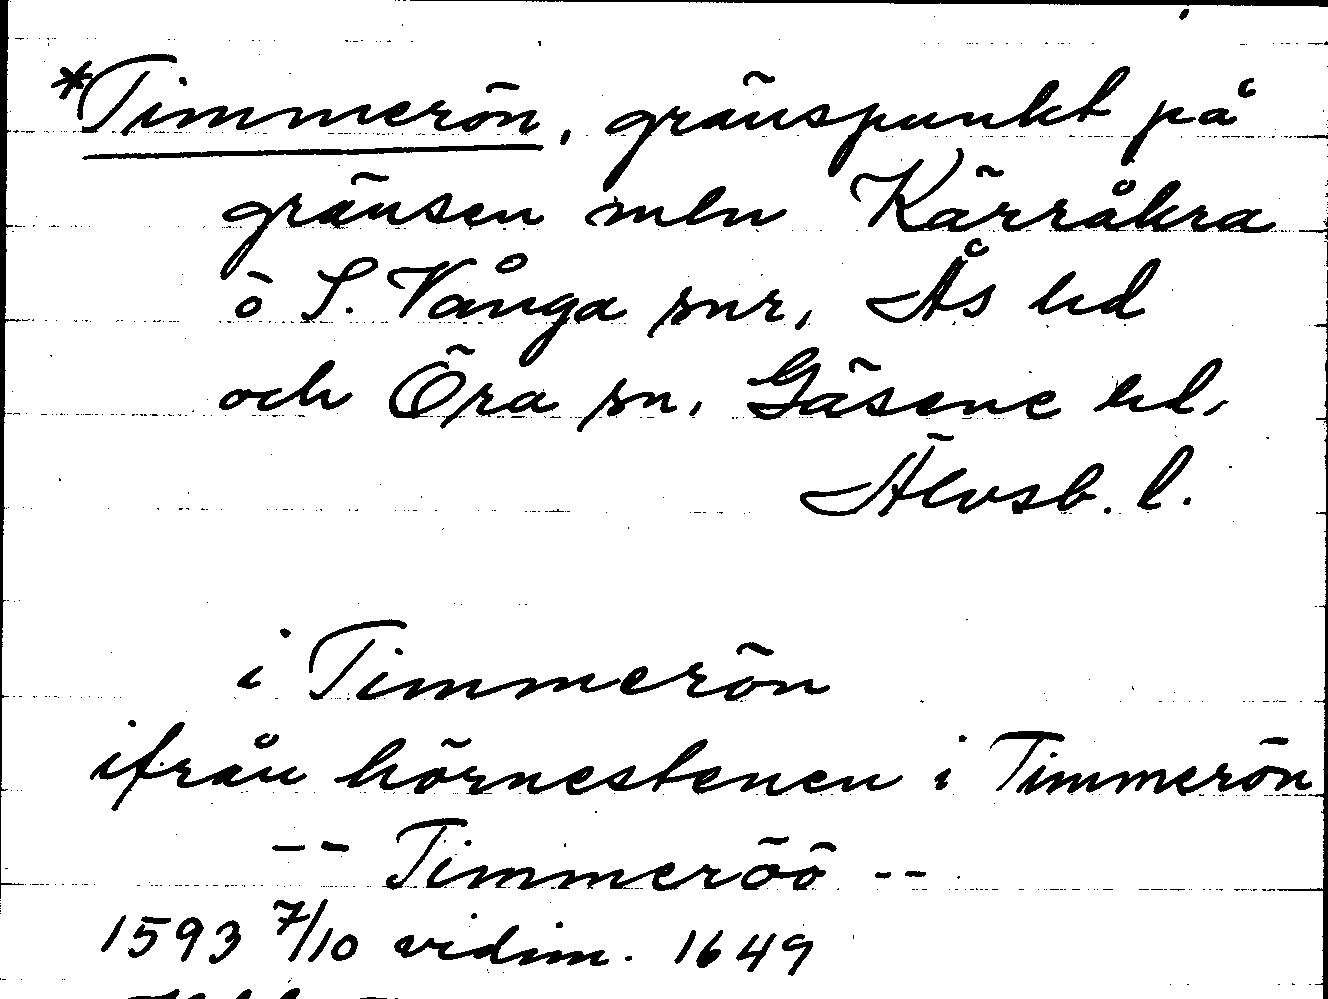 *Timmerön, gränspunkt på
gränsen mln Kärråkra
o S. Vånga snr, Ås hd
och Öra sn. Gäsene hd,
Älvsb. l.
i Timmerön
ifrån hörnestenen i Timmerön
-- Timmeröö --
1593 7/10 vidim. 1649